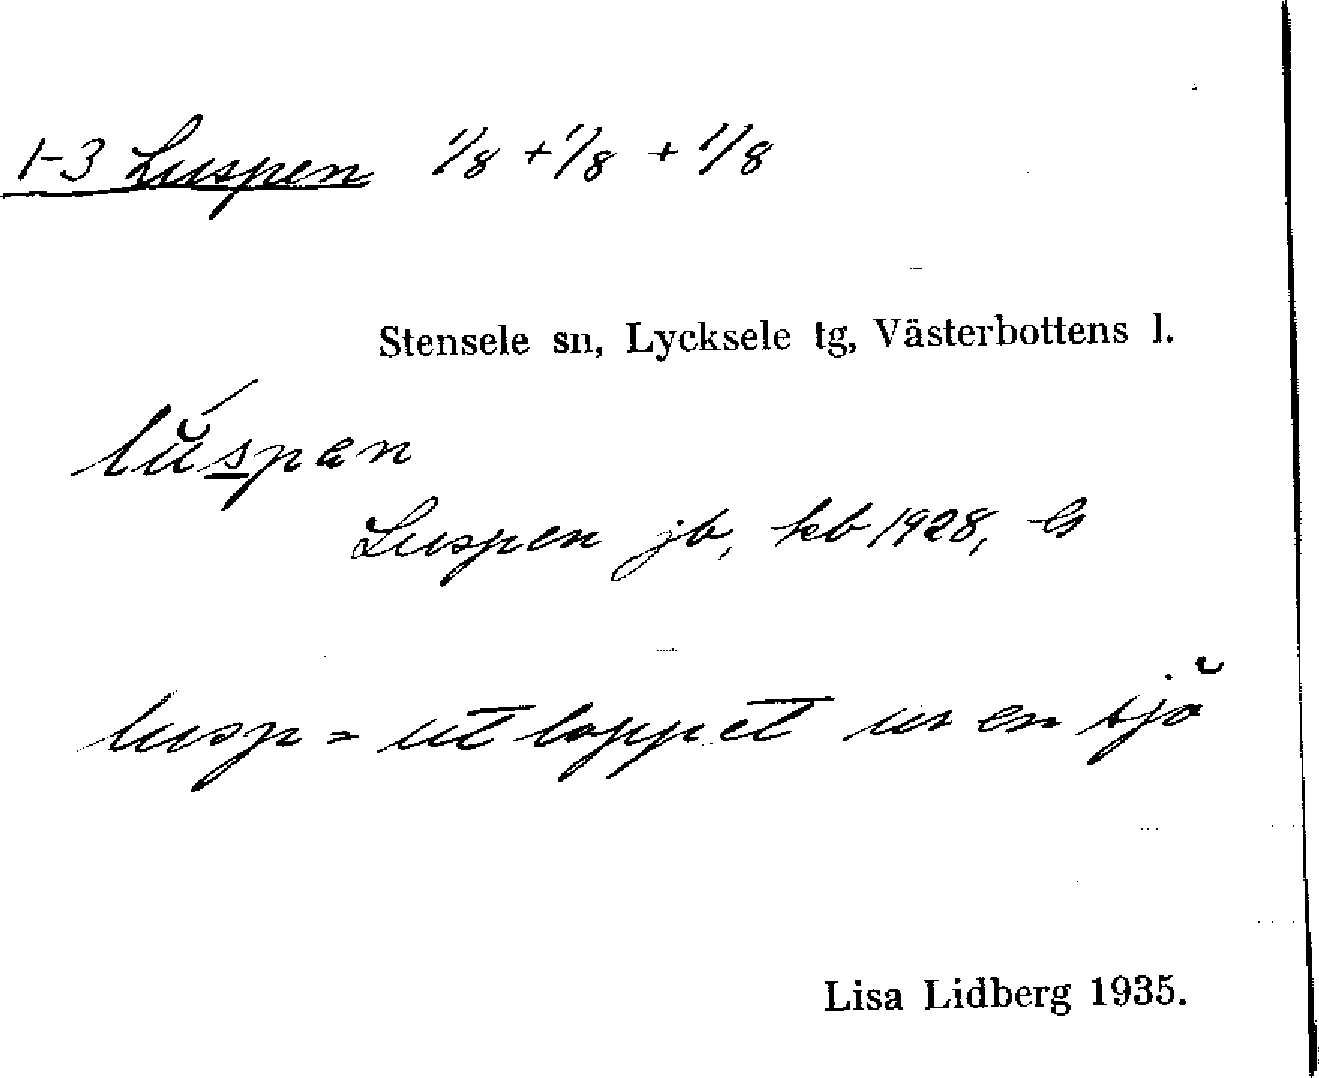 1-3 Luspen 1/8 + 1/8 + 1/8
Stensele sn, Lycksele tg, Västerbottens l.
lŭ́span
Luspen jb, kb 1928, G
lusp = utloppet ur en sjö
Lisa Lidberg 1935.